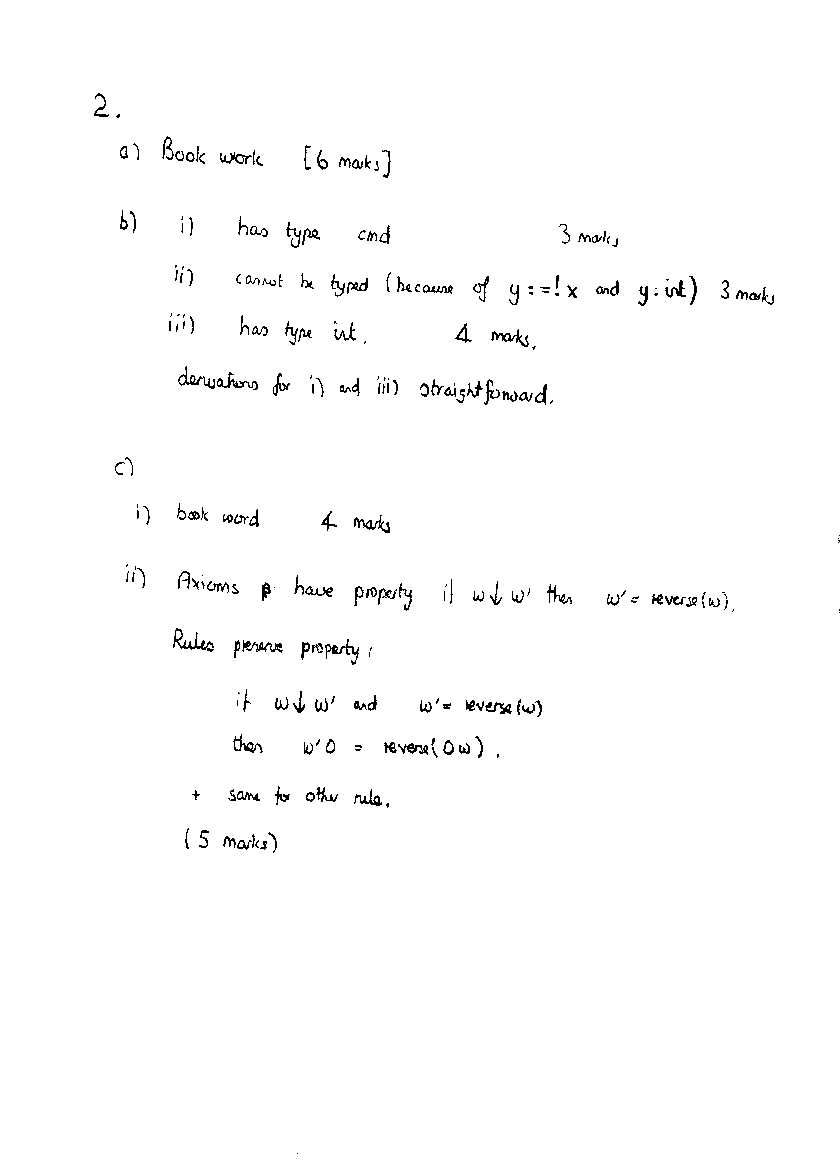 2.
a) Book work [6 marks]
b) i) has type cmd 3 marks
ii) cannot be typed (because of y:=!x and y:int) 3 marks
iii) has type int. 4 marks.
derivations for i) and iii) straightforward.
c)
i) book word 4 marks
ii) Axioms have property if w↓w' then w' = reverse(w).
Rules preserve property:
if w↓w' and w' = reverse(w)
then w'0 = reverse(0w).
+ same for other rule.
(5 marks)